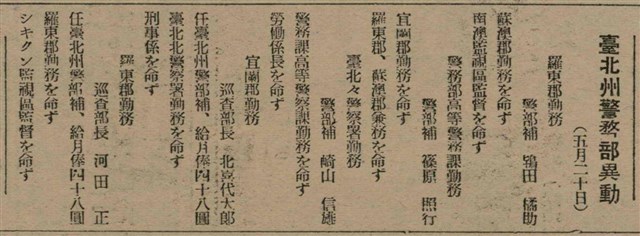 臺北州警務部異動
(五月二十日)
羅東郡勤務
警部補 鴇田 橘助
蘇澳郡勤務を命ず
南澳監視區監督を命ず
警務部高等警務課勤務
警部補 篠原 照行
宜蘭郡勤務を命ず
羅東郡、蘇澳郡兼務を命ず
臺北々警察署勤務
警部補 崎山 信雄
警務課高等警察課勤務を命ず
勞働係長を命ず
宜蘭郡勤務
巡査部長 北喜代太郎
任臺北州警部補、給月俸四十八圓
臺北北警察署勤務を命ず
刑事係を命ず
羅東郡勤務
巡査部長 河田 正
任臺北州警部補、給月俸四十八圓
羅東郡勤務を命ず
シキクン監視區監督を命ず